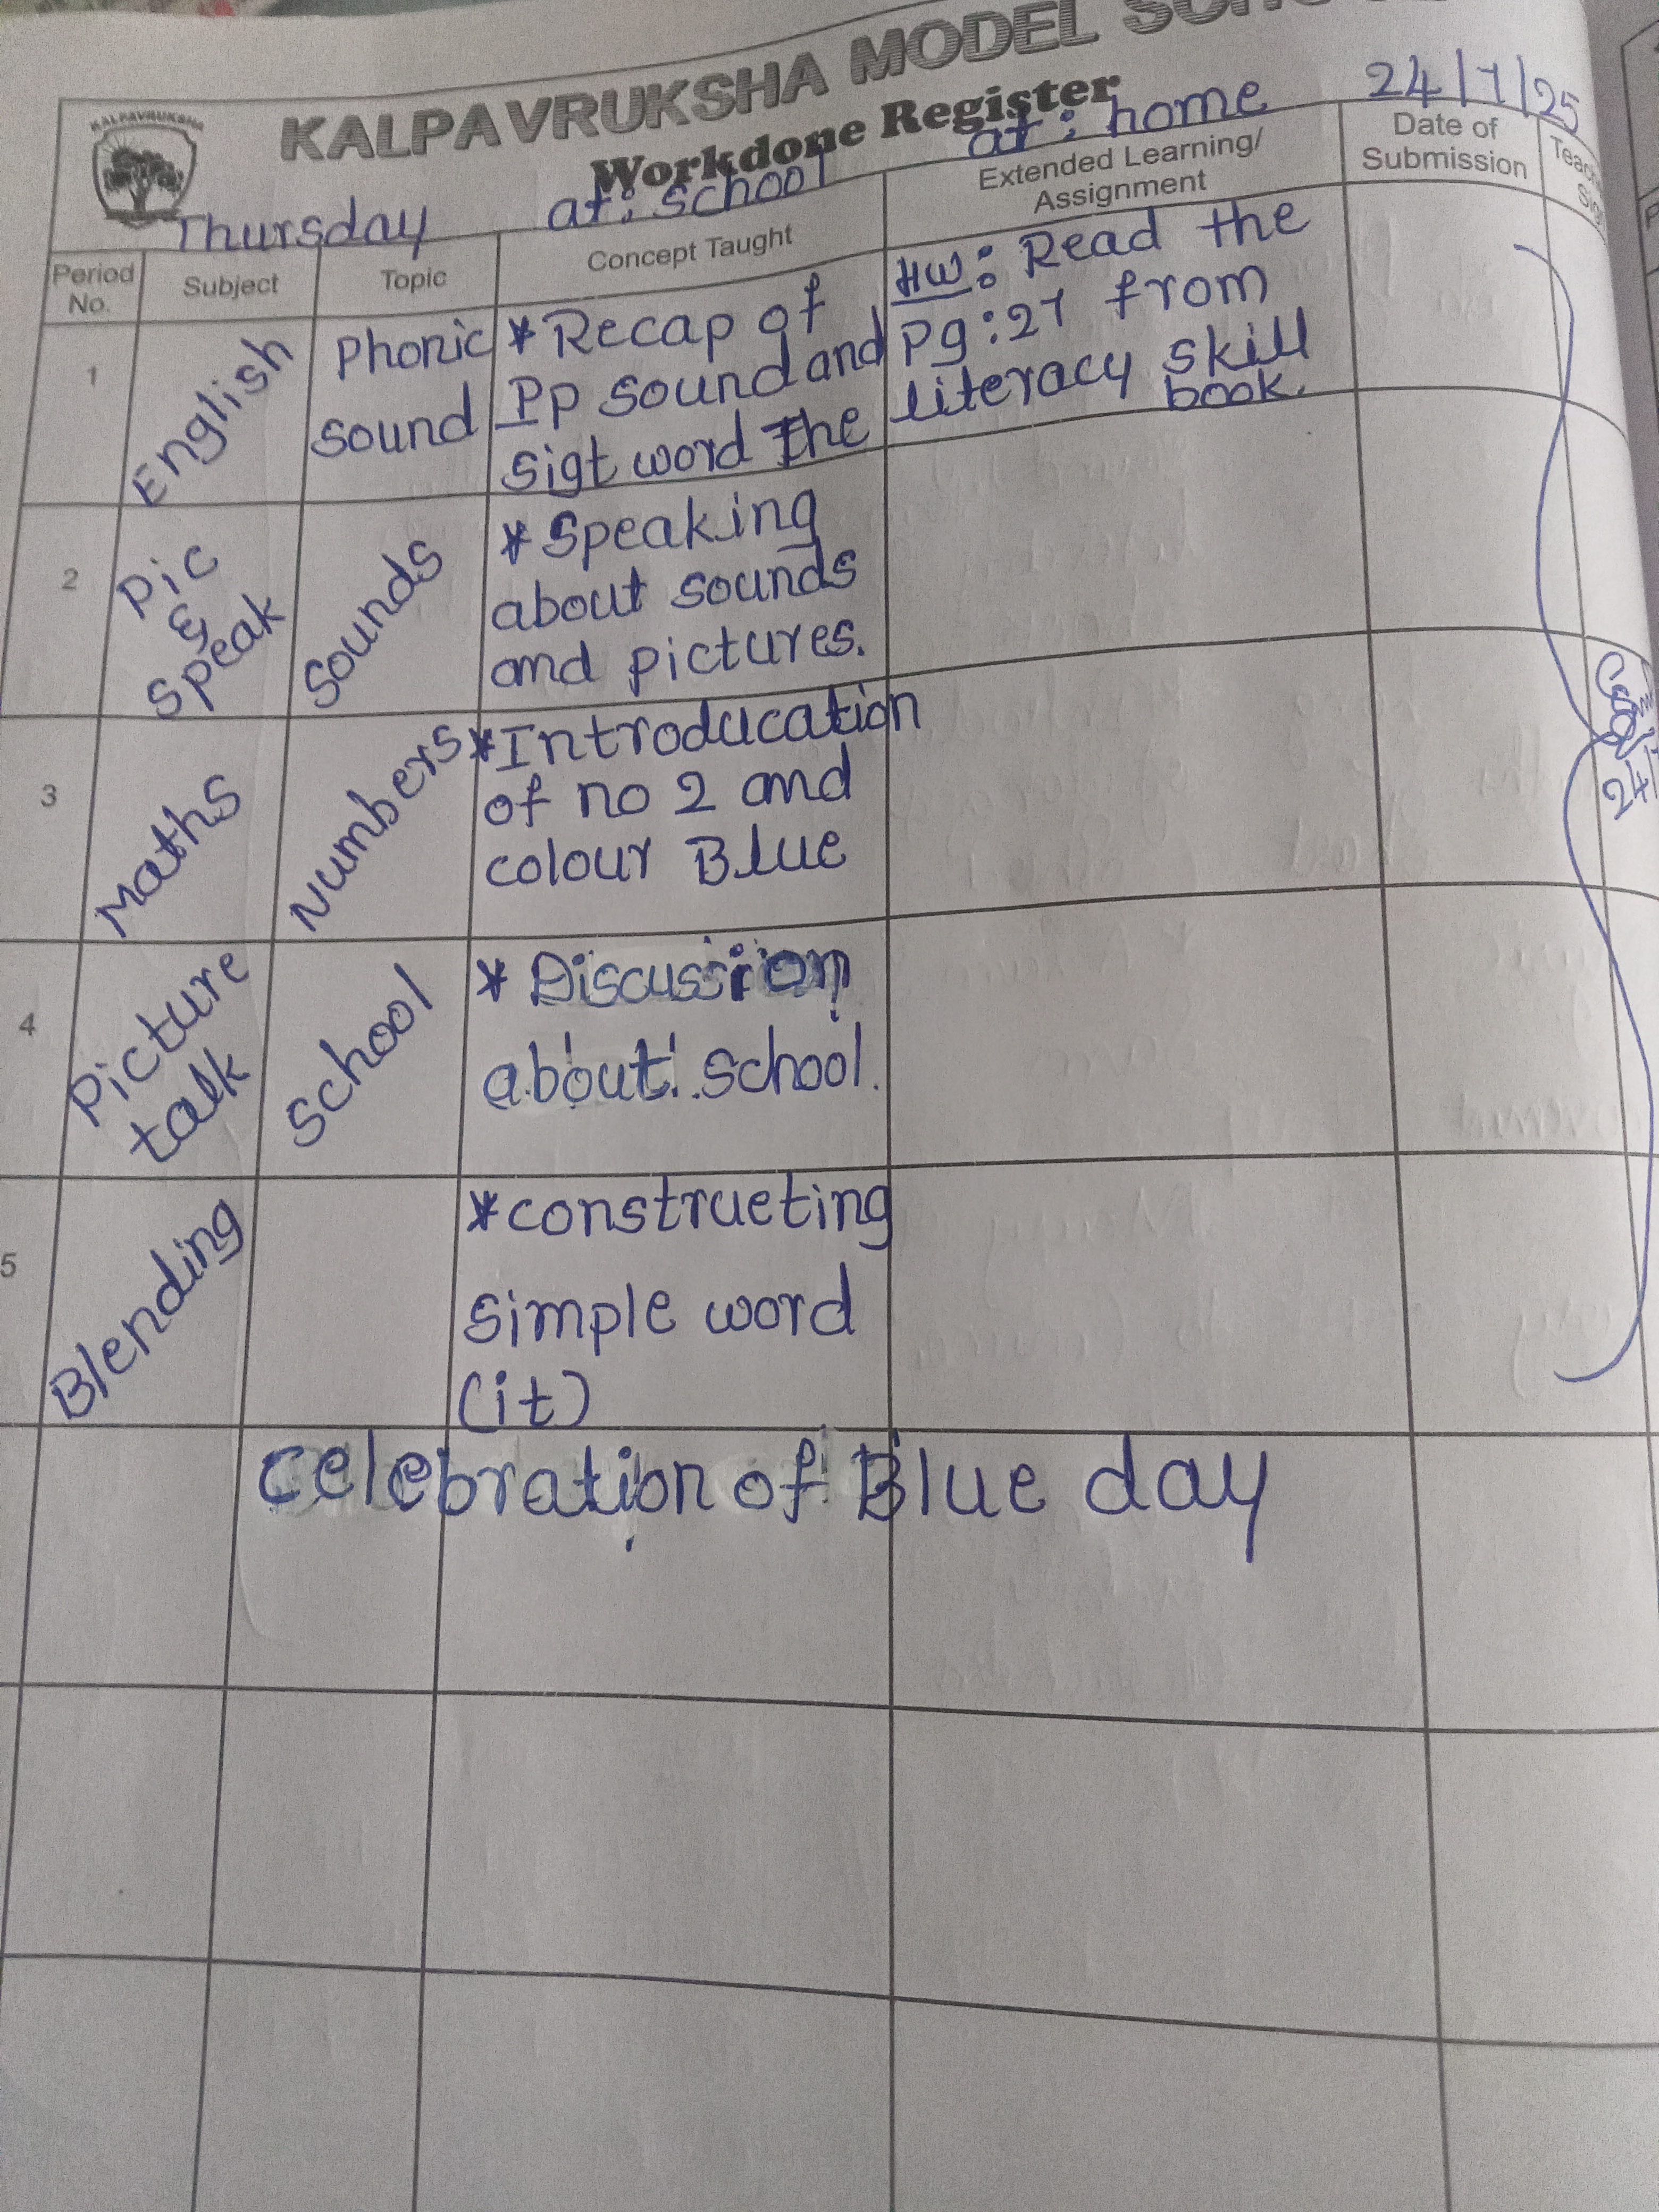 KALPAVRUKSHA MODEL
Workdone Register
KALPAVRUKSHA
24/7/25
Thursday at: school at: home
Period No. Subject Topic Concept Taught Extended Learning/ Assignment Date of Submission
1 English Phonic sound
*Recap of
Pp sound and
sigt word The
HW: Read the
Pg:27 from
literacy skill
book.
2 Pic & speak Sounds
*Speaking
about sounds
and pictures.
3 Maths Numbers
*Introducation
of no 2 and
colour Blue
4 Picture talk School
* Discussion
about school.
5 Blending
*constructing
simple word
(it)
celebration of Blue day
24/